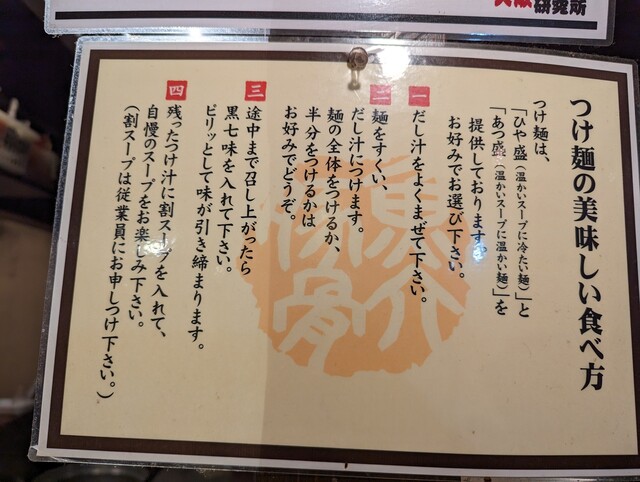 研究所
つけ麺の美味しい食べ方
つけ麺は、
「ひや盛（温かいスープに冷たい麺）」と
「あつ盛（温かいスープに温かい麺）」を
提供しております。
お好みでお選び下さい。
一
だし汁をよくまぜて下さい。
二
麺をすくい、
だし汁につけます。
麺の全体をつけるか、
半分をつけるかは
お好みでどうぞ。
三
途中まで召し上がったら
黒七味を入れて下さい。
ピリッとして味が引き締まります。
四
残ったつけ汁に割スープを入れて、
自慢のスープをお楽しみ下さい。
（割スープは従業員にお申しつけ下さい。）
魚介
豚骨